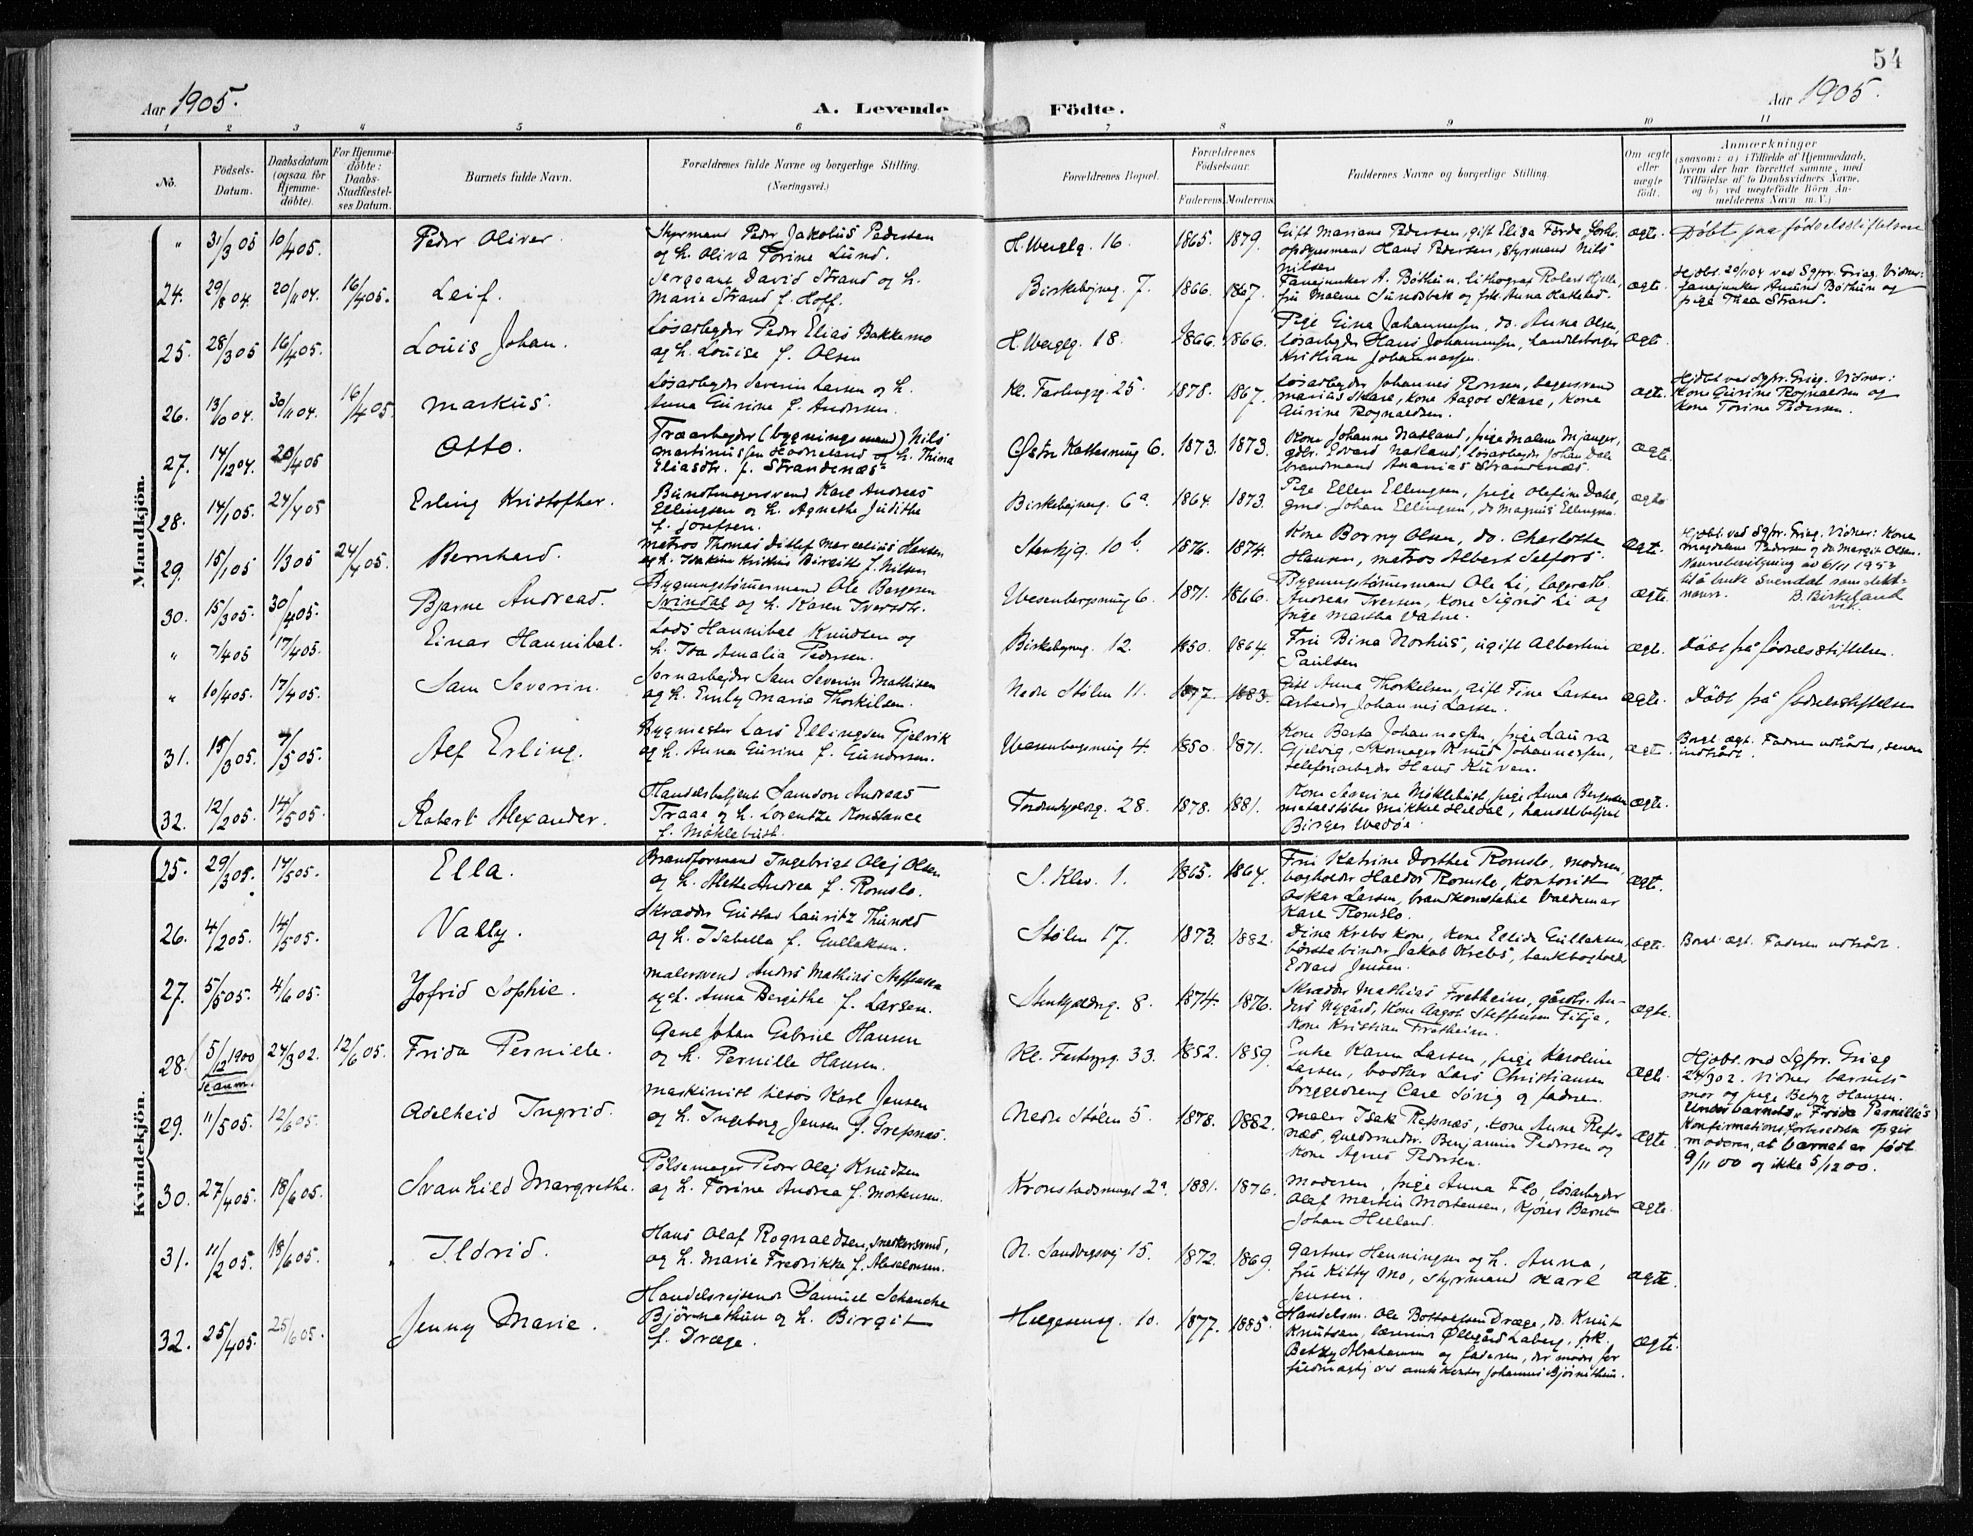 54
Aar 1905.
A. Levende Födte.
Aar 1905.
1 2 3 4 5 6 7 8 9 10 11
No.
Födsels-Datum.
Daabsdatum (ogsaa for Hjemme-döbte).
For Hjemme-döbte: Daabs-Stadfæstel-ses Datum.
Barnets fulde Navn.
Forældrenes fulde Navne og borgerlige Stilling.
(Næringsvei.)
Forældrenes Bopæl.
Forældrenes Födselsaar.
Faderens. Moderens.
Faddernes Navne og borgerlige Stilling.
Om ægte eller uægte födt.
Anmærkninger
(saasom: a) i Tilfælde af Hjemmedaab,
hvem der har forrettet samme, med
Tilföielse af to Daabsvidners Navne,
og b) ved uægtefödte Börn An-
melderens Navn m. V.)
Mandkjön.
" 31/3 05 10/4 05. Peder Oliver.
Styrmand Peder Jakobus Pedersen
og h. Oliva Torine Lund.
H. Wergelg. 16. 1865. 1879.
Gift Mariane Pedersen, gift Elisa Förde,
Hans Pedersen, styrmand Nils
Nilsen
ægte. Döbt paa födselsstiftelsen
24. 29/8 04. 20/11 04. 16/4 05. Leif.
Sergeant David Strand og h.
Marie Strand f. Hoff.
Birkebejnerg. 7. 1866. 1867.
Fanejunker A. Böthun, lithograf Robert Hjelle,
fru Malene Sundsbak og frk. Anna Hatlestad.
ægte. Hjdbt. 20/11 04 ved Sgpr. Grieg. Vidner:
fanejunker Amund Böthun og
pige Thea Strand.
25. 28/3 05 16/4 05. Louis Johan.
Lösarbejder Peder Elias Bakkemo
og h. Louise f. Olsen
H. Wergelg. 18. 1866. 1866.
Pige Gina Johannessen, do. Anna Olsen,
lösarbejder Hans Johannessen,
Kristian Johannessen.
ægte
26. 13/10 04. 30/11 04. 16/4 05. Markus.
Lösarbejder Severin Larsen og h.
Anna Gurine f. Andersen.
Kl. 25. 1878. 1867.
Lösarbejder Johannes Rossen, bagersvend
Marius Skare, kone Aagot Skare, kone
Gurine Rognaldsen.
ægte. Hjdbt ved Sgpr. Grieg. Vidner:
Kone Gurine Rognaldsen og
Kone Torine Pedersen.
27. 14/12 04. 20/4 05 Otto.
Træarbejder (bygningsmand) Nils
Martinussen Hodneland og h. Thina
Eliasdtr. f. Strandenæs.
6. 1873. 1873.
Kone Johanne Natland, pige Malene Mjanger,
gdbr. Edvard Natland, lösarbejder Johan Dale
brandmand Ananias Strandenæs.
ægte.
28. 14/1 05. 24/4 05 Erling Kristoffer.
Buntmagersvend Karl Andreas
Ellingsen og h. Agnethe Judithe
f. Josefsen.
Birkebejnerg. 6a 1864. 1873.
Pige Ellen Ellingsen, pige Olefine Dahl,
Johan Ellingsen, do Magnus Ellingsen.
ægte
29. 15/1 05. 1/3 05 24/4 05. Bernhard.
Matros Thomas Ditlef Marcelius Hansen
og h. Birgitte f. Nilsen
Stenkjg. 10 b. 1876. 1874.
Kone Borny Olsen, do. Charlotte
Hansen, matros Albert Selfors.
ægte. Hjdbt. ved Sgpr. Grieg. Vidner: Kone
Magdalena Pedersen og do Margit Olsen.
30. 15/3 05. 30/4 05. Bjarne Andreas.
Bygningstömmermand Ole Bergesen
Svindal og h. Karen Iversdtr.
Wesenbergsmug 6. 1871. 1866.
Bygningstömmermand Ole Li,
Andreas Iversen, kone Sigrid Li og
pige Martha Vatne.
ægte. Navnebevilgning av 6/11 1953
til å bruke Svendal som slekts-
navn. B. Birkeland
vik.
" 7/4 05 17/4 05. Einar Hannibal.
Lods Hannibal Knudsen og
h. Ida Amalia Pedersen.
Birkebejnerg. 12. 1850. 1864.
Fru Bina Norhus, ugift Albertine
Paulsen
ægte. Döbt på födselsstiftelsen.
" 10/4 05. 17/4 05. Sam Severin.
Jernarbejder Sam Severin Mathisen
og h. Emly Maria Thorkilsen.
Nedre Stölen 11. 1877. 1883.
Gift Anna Thorkelsen, gift Fine Larsen
Arbeider Johannes Larsen.
ægte. Döbt på födselsstiftelsen
31. 15/3 05. 7/5 05. Alf Erling.
Bygmester Lars Ellingsen Gjelvik
og h. Anna Gurine f. Gundersen.
Wesenbergsmug 4. 1850. 1871.
Kone Berta Johannessen, pige Laura
Gjelvig, skomager Knud Johannessen,
telefonarbejder Hans Kuven.
ægte. Borgl. ægt. Faderen udtrådt, senere
indtrådt.
32. 12/2 05. 14/5 05. Robert Alexander.
Handelsbetjent Samson Andreas
Traae og h. Lorentze Konstance
f. Möklebust.
Tordenskjoldsg. 28. 1878. 1881.
Kone Severine Möklebust, pige Anna
metalstöber Mikkel Heldal, handelsbetjent
Birger Wedöe
ægte.
Kvindekjön.
25. 29/3 05. 14/5 05. Ella.
Brandformand Ingebrigt Olaj Olsen
og h. Alette Andrea f. Romslo.
S. Klev. 1. 1865. 1864.
Fru Katrine Dorthea Romslo, moderen,
bogholder Haldor Romslo, kontorist
Oskar Larsen, brandkonstabel Valdemar
Karl Romslo.
ægte.
26. 4/2 05. 14/5 05. Vally.
Skrædder Gustav Lauritz Thunold
og h. Isabella f. Gullaksen.
Stölen 17. 1873. 1882.
Dina Krebs kone, kone Ellida Gullaksen,
börstebinder Jakob Krebs, bankbogholder
Edvard Jensen.
ægte. Borgl. ægt. Faderen udtrådt.
27. 5/5 05. 4/6 05. Jofrid Sophie.
Malersvend Anders Mathias Steffensen
og h. Anna Bergithe f. Larsen.
Stenkjælderg. 8. 1874. 1876.
Skrædder Mathias Fretheim, gårdbr. An-
ders Nygård, kone Aagot Steffensen Titja,
kone Kristian Fretheim.
ægte.
28. (5/12 1900) 24/3 02. 12/6 05. Frida Pernille.
Johan Gabriel Hansen
og h. Pernille Hansen.
33. 1852. 1859.
Enke Karen Larsen, pige Karoline
Larsen, bödker Lars Christiansen
bryggedreng Carl Söng og faderen.
ægte. Hjdbt. ved Sgpr. Grieg
24/3 02. Vidner barnets
mor og pige Betzy Hansen.
Under barnet, Frida Pernille's
Konfirmationsforberedelse opgir
moderen, at barnet er födt
9/11 00 og ikke 5/12 00.
29. 11/5 05. 12/6 05. Adelheid Ingrid.
Maskinist tilsös Karl Jensen
og h. Ingeborg Jensen f. Grepnæs.
Nedre Stölen 5. 1878. 1882.
Maler Isak Refsnæs, kone Anne Refs-
næs, guldsmeder Benjamin Pedersen og
kone Agnes Pedersen.
ægte.
30. 27/4 05. 18/6 05. Svanhild Margrethe.
Pölsemager Peder Olaj Knudsen
og h. Torine Andrea f. Mortensen.
Kronstadsmuget 2a. 1881. 1876.
Moderen, pige Anna Flo, lösarbejder
Olaf Martin Mortensen, kjörer Bernt
Johan Helland.
ægte.
31. 11/2 05. 18/6 05. Ildrid.
Hans Olaf Rognaldsen, snekkersvend,
og h. Marie Fredrikke f. Absalonsen.
N. Sandvigsvej 15. 1872. 1869.
Gartner Henningsen og h. Anna,
fru Kitty Mo, styrmand Karl
Jensen.
ægte.
32. 25/4 05. 25/6 05. Jenny Marie.
Handelsrejsende Samuel Schancke
Björnethun og h. Birgit
f. Dræge.
Helgesensg. 10. 1877. 1885.
Handelsm. Ole Bottolfsen Dræge, do. Knut
Knutsen, lærerinde Öllegård Laberg, frk.
Betzy Abrahamsen og faderen, der möder for
fuldmægtig ved amtskontor Johannes Björnethun.
ægte.